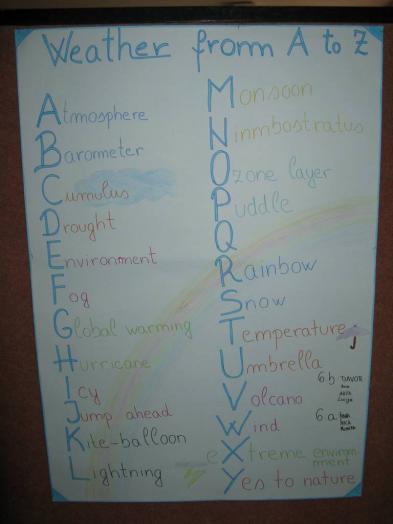 Weather from A to Z
Atmosphere
Barometer
Cumulus
Drought
Environment
Fog
Global warming
Hurricane
Icy
Jump ahead
Kite-balloon
Lightning
Monsoon
Ninmbostratus
Ozone layer
Puddle
Q
Rainbow
Snow
Temperature
Umbrella
Volcano
Wind
eXtreme environ
nment
Yes to nature
6b
6a